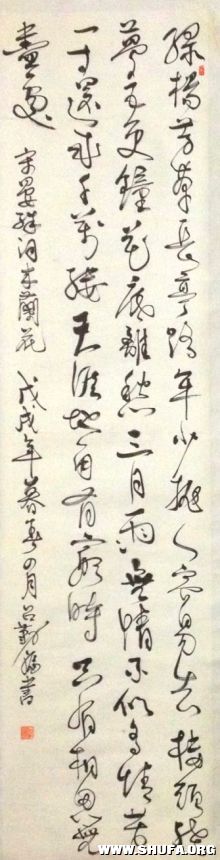 綠楊芳草長亭路年少拋人容易去樓頭殘
夢五更鐘花底離愁三月雨無情不似多情苦
一寸還成千萬縷天涯地角有窮時只有相思無
盡處 宋晏殊詞木蘭花 戊戌年暮春四月呂福書
WWW.SHUFA.ORG